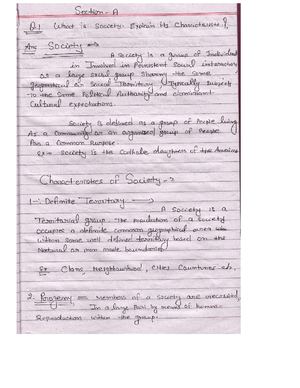 Section - A
Q.1 What is Society? Explain its Characteristics?
Ans Society
A Society is a group of Individual
in Involved in Persistent Social interaction
or a large social group Sharing the same
geographical or Social Territory, Typically Subject
to the Same Political Authority and dominant
Cultural expectations.
Society is defined as a group of People living
As a Community or an organised group of People
for a Common Purpose
Ex:- Society is the Catholic daughters of the America
Characteristics of Society:-
1-: Definite Territory
A Society is a
Territorial group. The population of a Society
occupies a definite common geographical area
within some well defined territory based on the
Natural or man made boundaries.
Ex Clans, Neighbourhood, Cities Countries etc.
2. Progeny Members of a society are recruited,
In a large Part by means of human
Reproduction within the group.